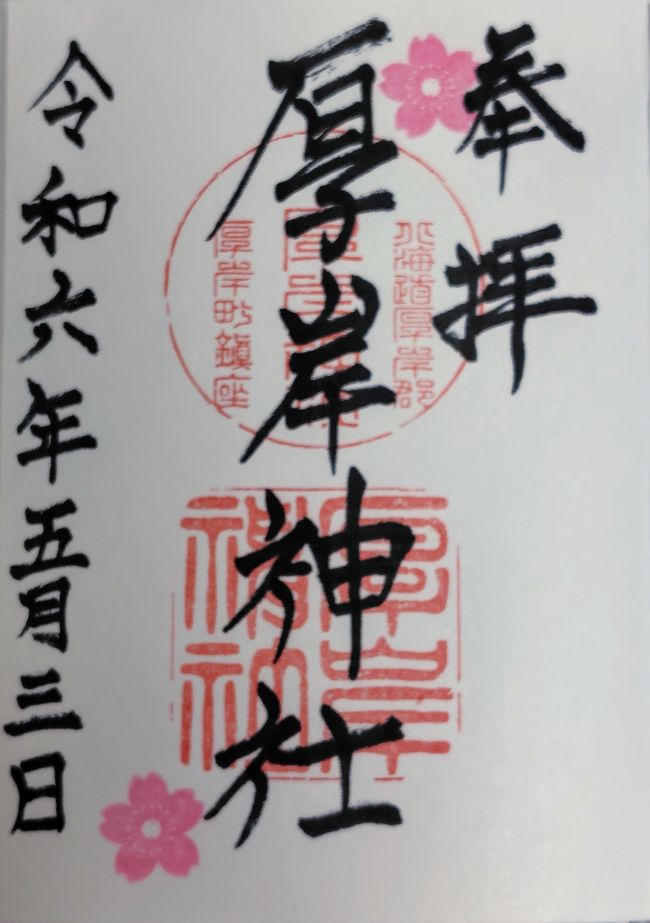 奉拝
北海道厚岸郡
厚岸神社
厚岸町鎮座
厚岸神社
厚岸神社
令和六年五月三日